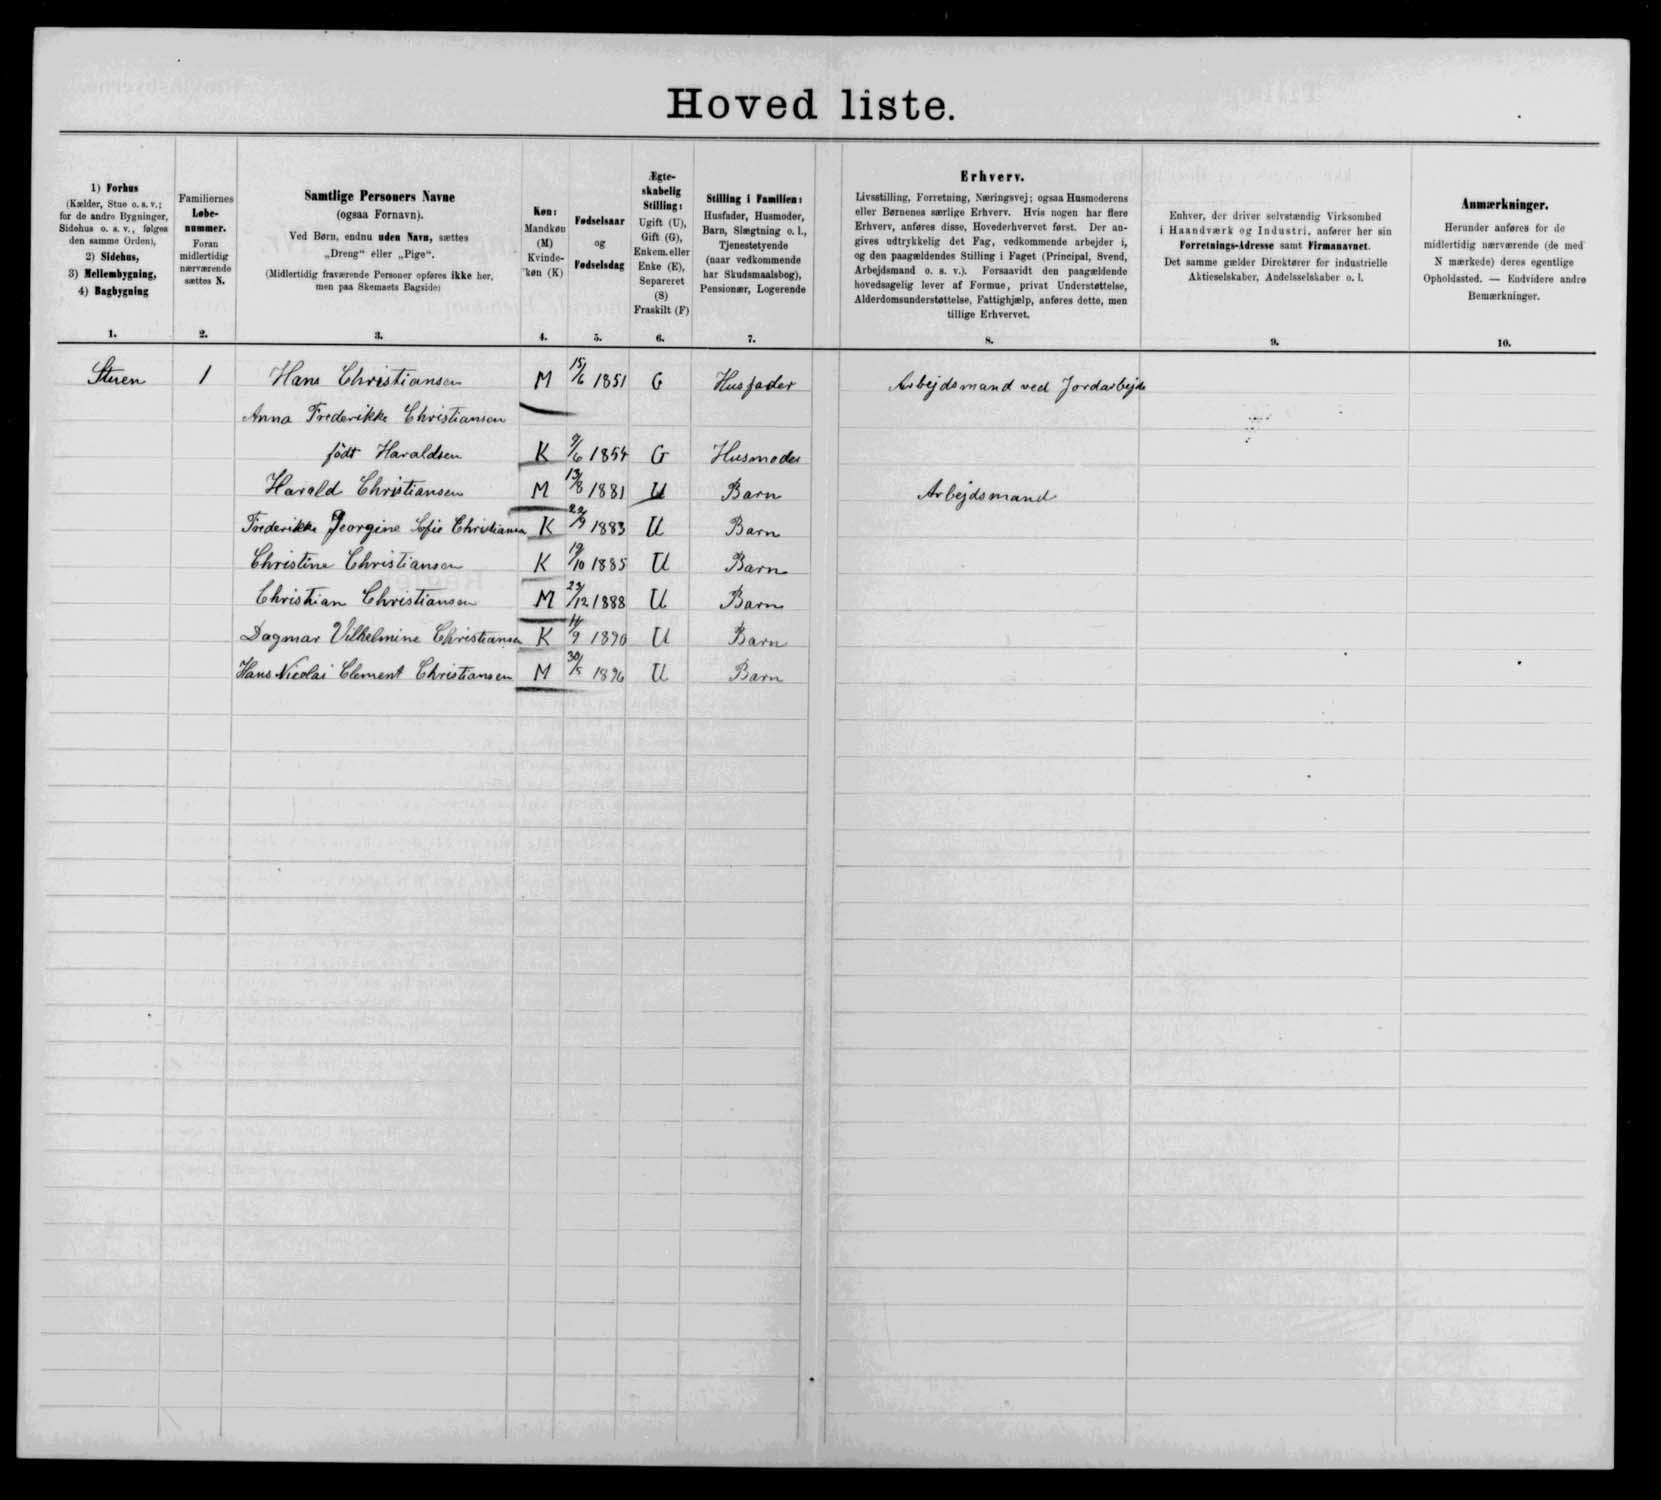 Hoved liste.
1) Forhus
(Kælder, Stue o. s. v.;
for de andre Bygninger,
Sidehus o. s. v., følges
den samme Orden),
2) Sidehus,
3) Mellembygning,
4) Bagbygning
1.
Familiernes
Løbe-
nummer.
Foran
midlertidig
nærværende
sættes N.
2.
Samtlige Personers Navne
(ogsaa Fornavn).
Ved Børn, endnu uden Navn, sættes
„Dreng“ eller „Pige“.
(Midlertidig fraværende Personer opføres ikke her,
men paa Skemaets Bagside)
3.
Køn:
Mandkøn
(M)
Kvinde-
køn (K)
4.
Fødselsaar
og
Fødselsdag
5.
Ægte-
skabelig
Stilling:
Ugift (U),
Gift (G),
Enkem. eller
Enke (E),
Separeret
(S)
Fraskilt (F)
6.
Stilling i Familien:
Husfader, Husmoder,
Barn, Slægtning o. l.,
Tjenestetyende
(naar vedkommende
har Skudsmaalsbog),
Pensionær, Logerende
7.
Erhverv.
Livsstilling, Forretning, Næringsvej; ogsaa Husmoderens
eller Børnenes særlige Erhverv. Hvis nogen har flere
Erhverv, anføres disse, Hovederhvervet først. Der an-
gives udtrykkelig det Fag, vedkommende arbejder i,
og den paagældendes Stilling i Faget (Principal, Svend,
Arbejdsmand o. s. v.). Forsaavidt den paagældende
hovedsagelig lever af Formue, privat Understøttelse,
Alderdomsunderstøttelse, Fattighjælp, anføres dette, men
tillige Erhvervet.
8.
Enhver, der driver selvstændig Virksomhed
i Haandværk og Industri, anfører her sin
Forretnings-Adresse samt Firmanavnet.
Det samme gælder Direktører for industrielle
Aktieselskaber, Andelsselskaber o. l.
9.
Anmærkninger.
Herunder anføres for de
midlertidig nærværende (de med
N mærkede) deres egentlige
Opholdssted. — Endvidere andre
Bemærkninger.
10.
Stuen 1 Hans Christiansen M 15/6 1851 G Husfader Arbejdsmand ved Jordarbejde
Anna Frederikke Christiansen
født Haraldsen K 9/6 1854 G Husmoder
Harald Christiansen M 13/8 1881 U Barn Arbejdsmand
Frederikke Georgine Sofie Christiansen K 22/9 1883 U Barn
Christine Christiansen K 19/10 1885 U Barn
Christian Christiansen M /12 1888 U Barn
Dagmar Vilhelmine Christiansen K /9 1890 U Barn
Hans Nicolai Clement Christiansen M 1896 U Barn